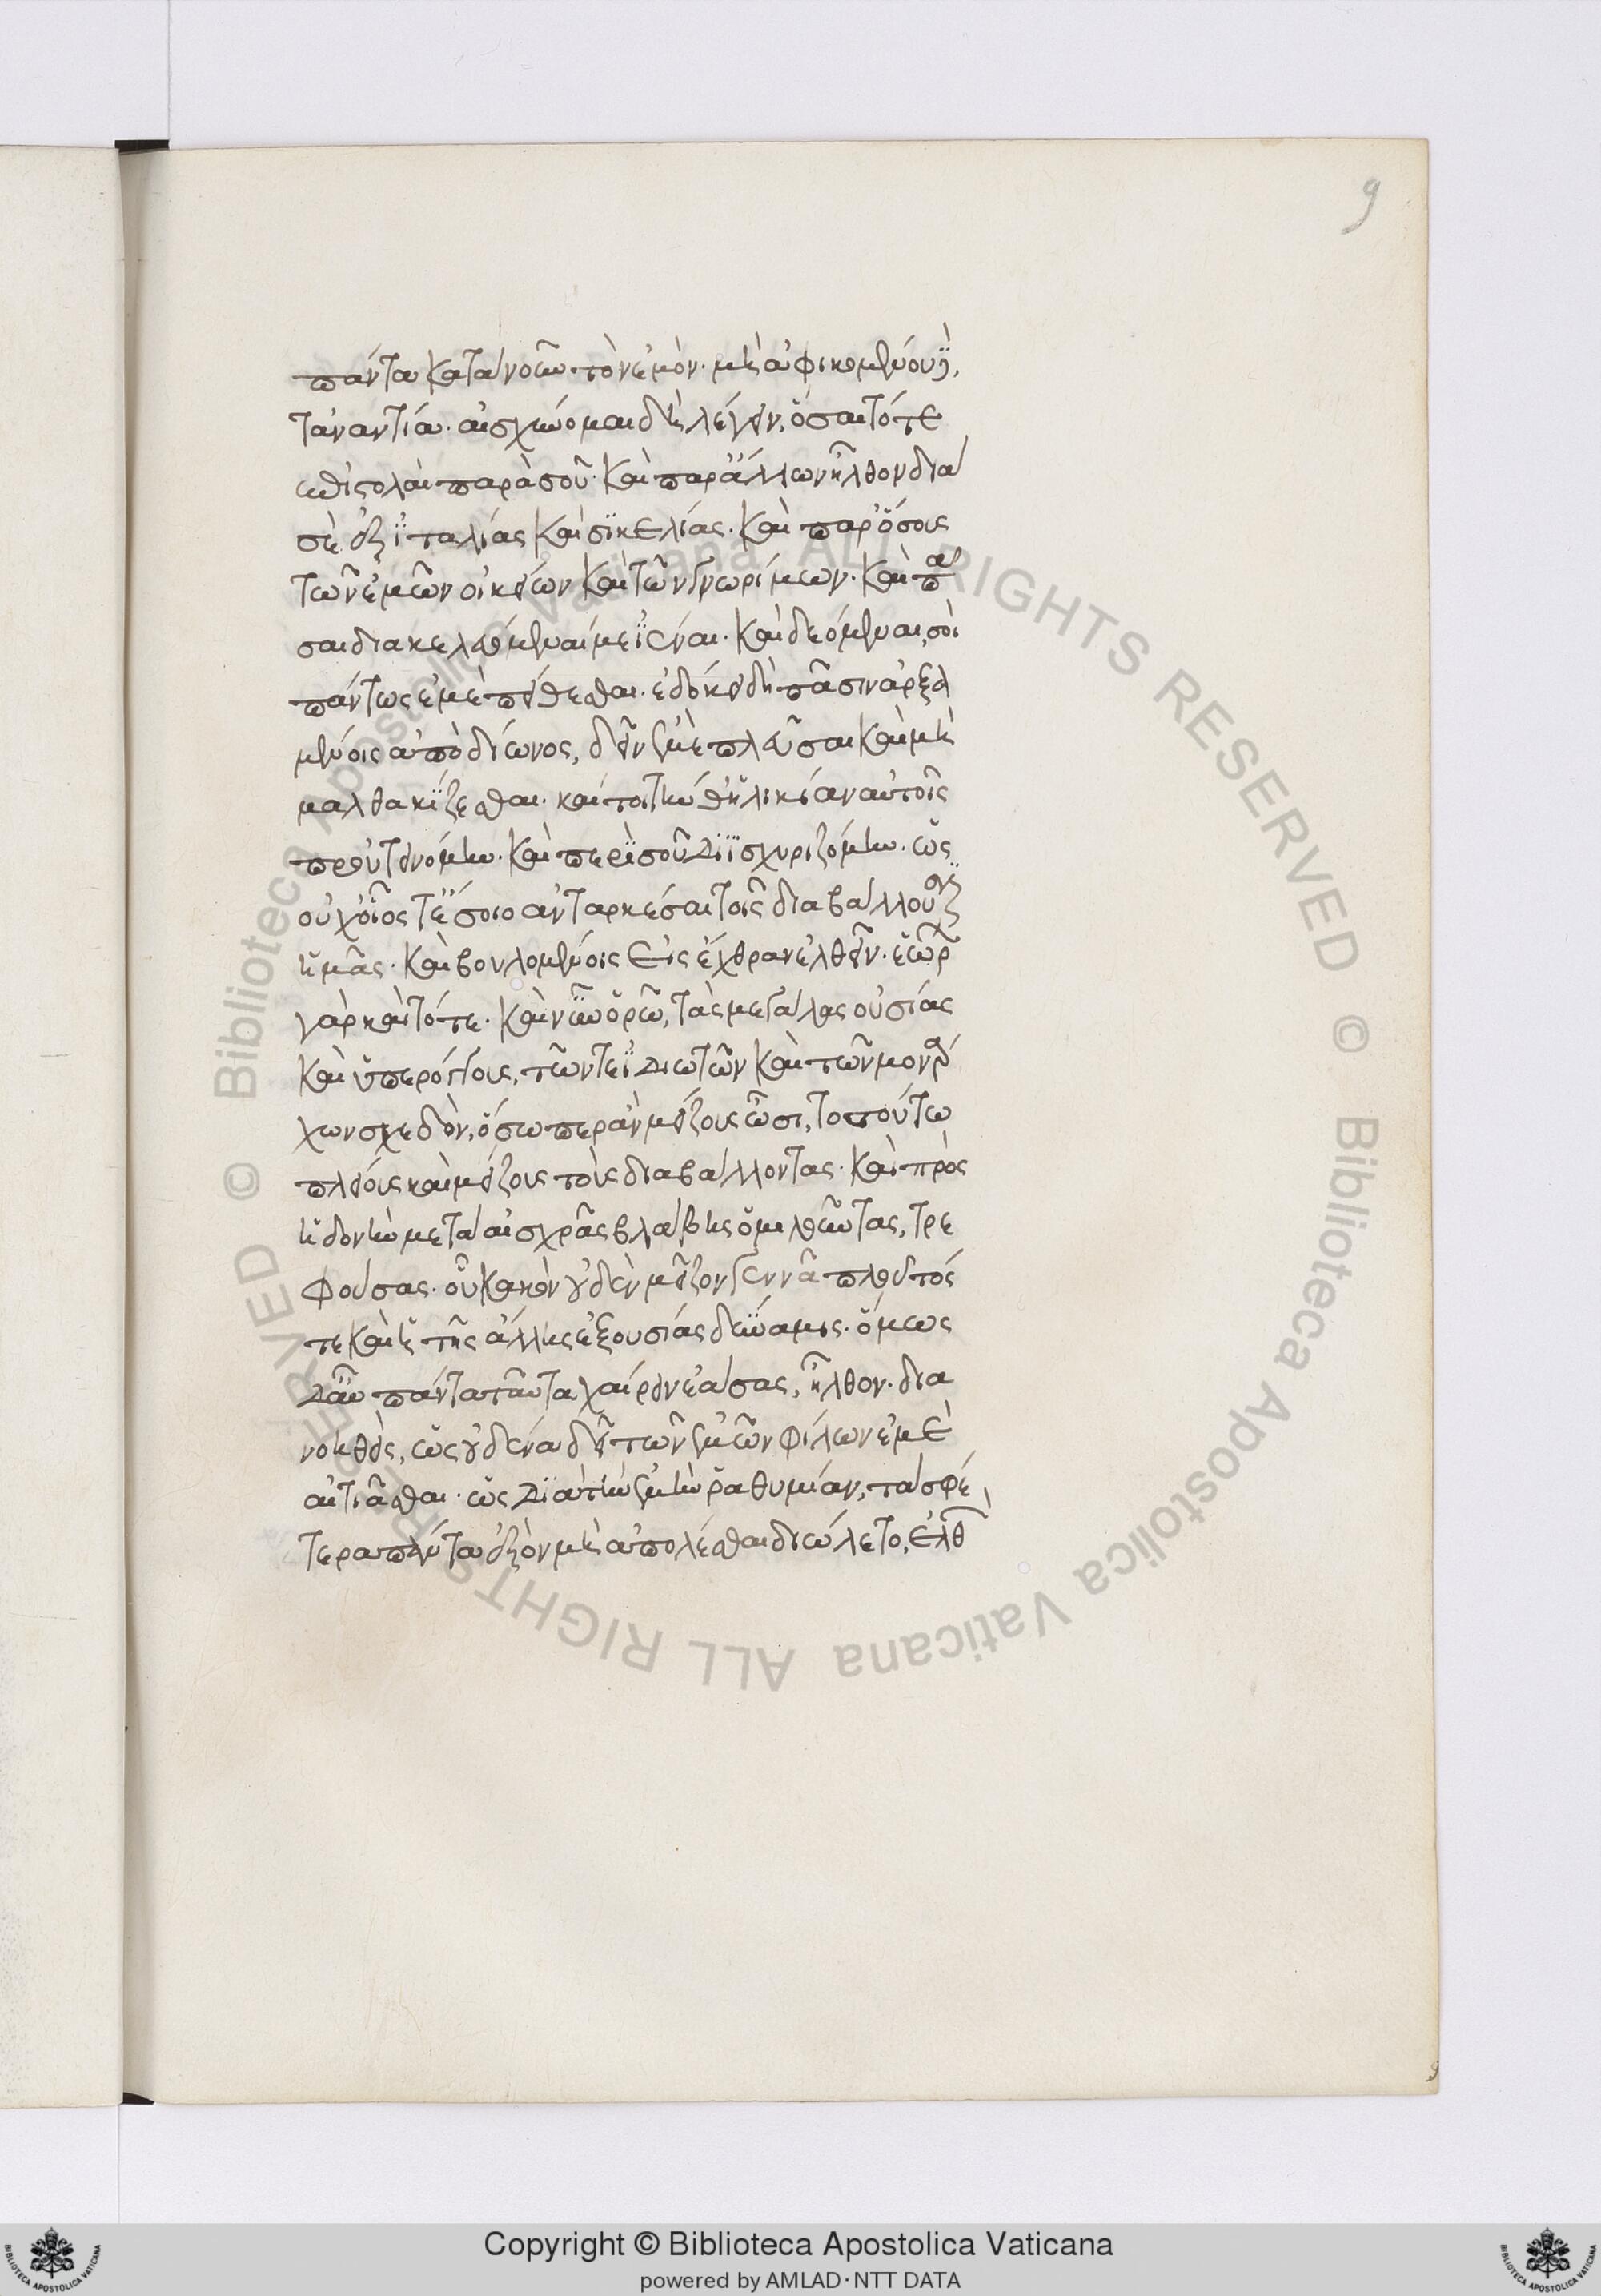 9
πάντα κατανοῶν τὸν ἐμὸν. μὴ ἀφικομένου δὲ,
τἀναντία. αἰσχύνομαι δὴ λέγειν, ὅσαι τότε
ἐπιστολαὶ παρὰ σοῦ. καὶ παρ' ἄλλων ἦλθον διὰ
σὲ ἐξ ἰταλίας καὶ σικελίας. καὶ παρ' ὅσους
τῶν ἐμῶν οἰκείων καὶ τῶν γνωρίμων. καὶ πᾶ
σαι διακελευόμεναί με ἰέναι. καὶ δεόμεναι, σοὶ
πάντως ἐμὲ πείθεσθαι. ἐδόκει δὴ πᾶσιν ἀρξα
μένοις ἀπὸ δίωνος, δεῖν ἐμὲ πλεῦσαι καὶ μὴ
μαλθακίζεσθαι. καίτοι τήν θ' ἡλικίαν αὐτοῖς
προὐτεινόμην. καὶ περὶ σοῦ διϊσχυριζόμην. ὡς
οὐχ οἷος τ' ἔσοιο ἀνταρκέσαι τοῖς διαβάλλουσιν
ἡμᾶς. καὶ βουλομένοις εἰς ἔχθραν ἐλθεῖν. ἑώρων
γὰρ καὶ τότε. καὶ νῦν ὁρῶ, τὰς μεγάλας οὐσίας
καὶ ὑπερόγκους, τῶν τε ἰδιωτῶν καὶ τῶν μονάρ
χων σχεδὸν, ὅσω περ ἂν μείζους ὦσι, τοσούτω
πλείους καὶ μείζους τοὺς διαβάλλοντας. καὶ πρὸς
ἡδονὴν μετὰ αἰσχρᾶς βλάβης ὁμιλοῦντας, τρε
φούσας. οὗ κακὸν οὐδὲν μεῖζον γεννᾶ πλοῦτός
τε καὶ ἡ τῆς ἄλλης ἐξουσίας δύναμις. ὅμως
δ' οὖν πάντα ταῦτα χαίρειν ἐάσας, ἦλθον. δια
νοηθεὶς, ὡς οὐδένα δεῖ τῶν ἐμῶν φίλων ἐμὲ
αἰτιᾶσθαι. ὡς διὰ τὴν ἐμὴν ῥαθυμίαν, τὰ σφέ
τερα πάντα ἐξὸν μὴ ἀπολέσθαι διώλετο, ἐλθὼν
Copyright © Biblioteca Apostolica Vaticana
powered by AMLAD·NTT DATA